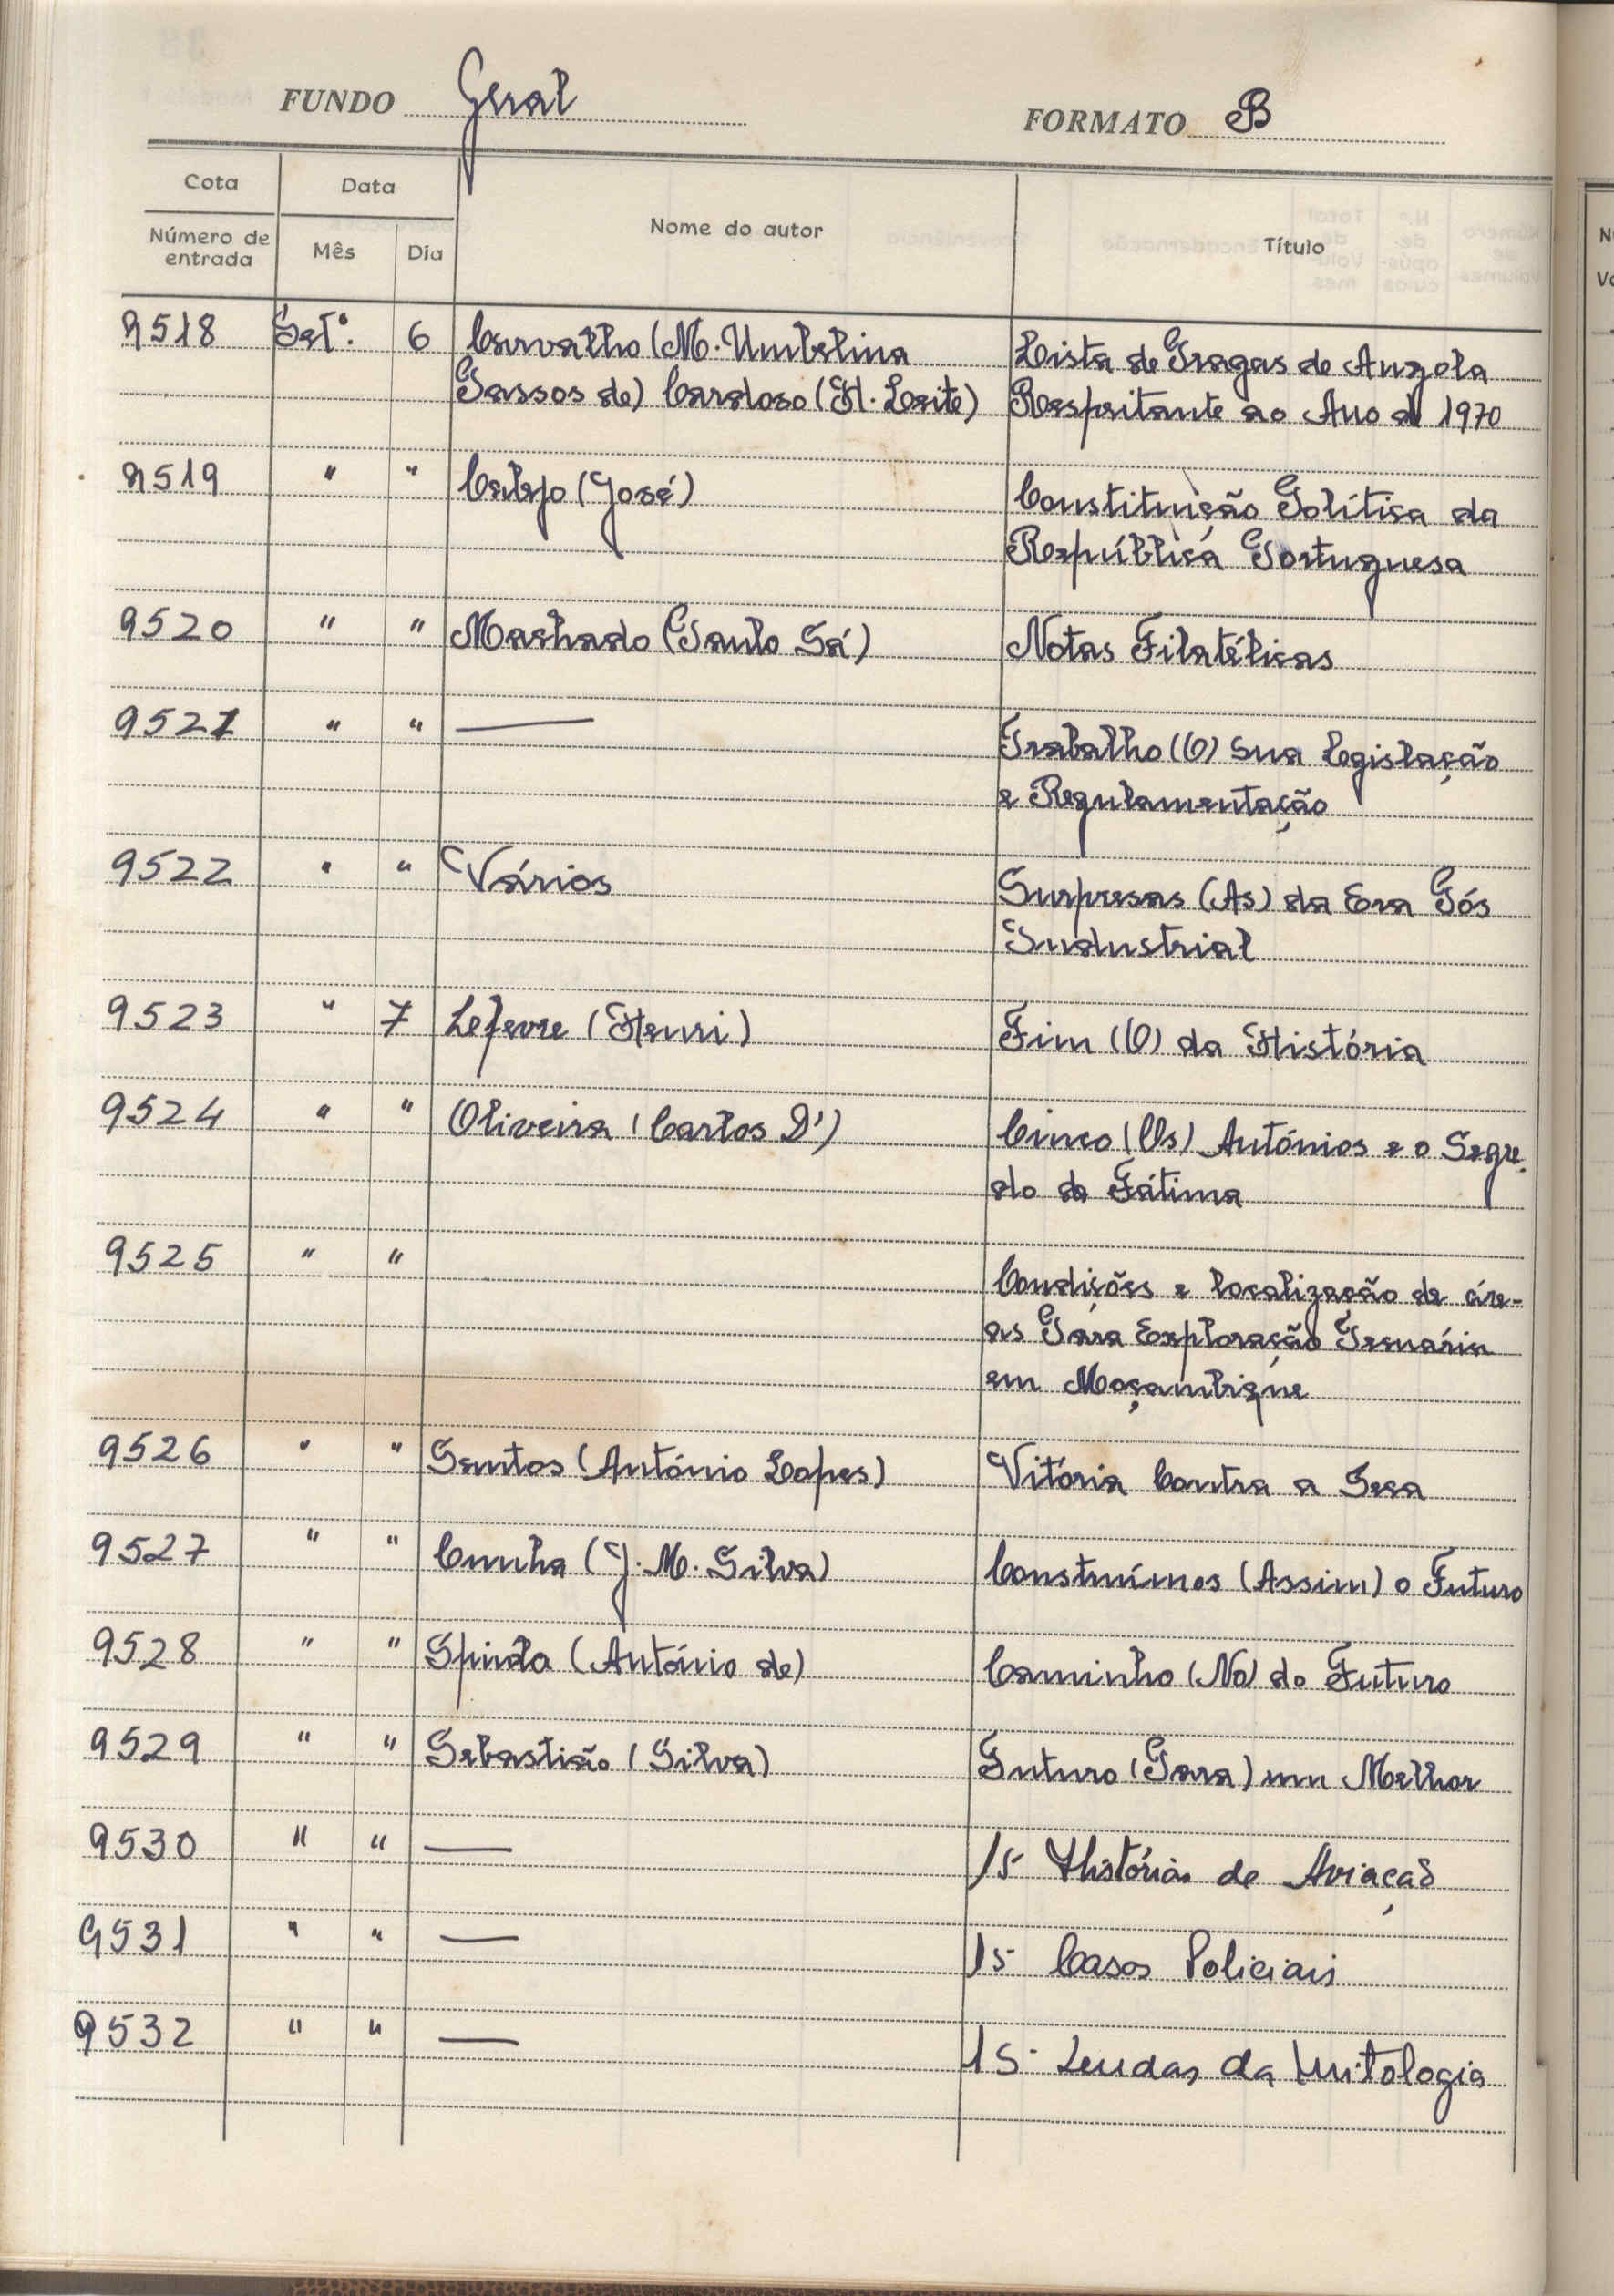 FUNDO Geral FORMATO B
Cota Data Nome do autor Título
Número de entrada Mês Dia
9518 Set.º 6 Carvalho (M. Umbelina Lista de Pragas de Angola
Passos de) Cardoso (H. Leite) Respeitante ao Ano de 1970
9519 " " Calejo (José) Constituição Política da
República Portuguesa
9520 " " Machado (Paulo Sá) Notas Filatélicas
9521 " " — Trabalho (O) Sua Legislação
e Regulamentação
9522 " " Vários Surpresas (As) da Era Pós
Industrial
9523 " 7 Lefevre (Henri) Fim (O) da História
9524 " " Oliveira (Carlos D') Cinco (Os) Antónios e o Segre-
do de Fátima
9525 " " Condições e localização de áre-
as Para Exploração Pecuária
em Moçambique
9526 " " Santos (António Lopes) Vitória Contra a Seca
9527 " " Cunha (J. M. Silva) Construímos (Assim) o Futuro
9528 " " Spinola (António de) Caminho (No) do Futuro
9529 " " Sebastião (Silva) Futuro (Para) um Melhor
9530 " " — 15 Histórias de Aviação
9531 " " — 15 Casos Policiais
9532 " " — 15 Lendas da Mitologia